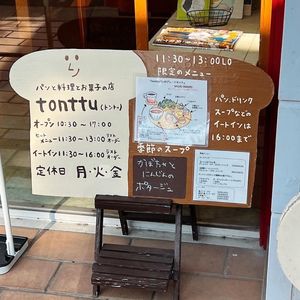 パンと料理とお菓子の店
tonttu(トントゥ)
オープン 10:30~17:00
ヒートメニュー 11:30~13:00 ラストオーダー
イートイン 11:30~16:00 ラストオーダー
定休日 月・火・金
11:30~13:00LO
限定のメニュー
季節のスープ
かぼちゃと
にんじんの
ポタージュ
パン、ドリンク
スープなどの
イートインは
16:00まで